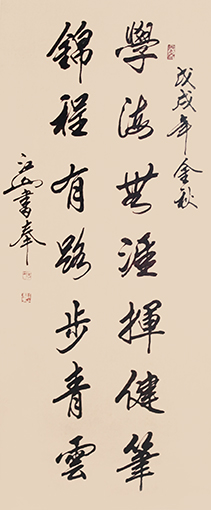 戊戌年金秋
學海無涯揮健筆
錦程有路步青雲
江山書奉